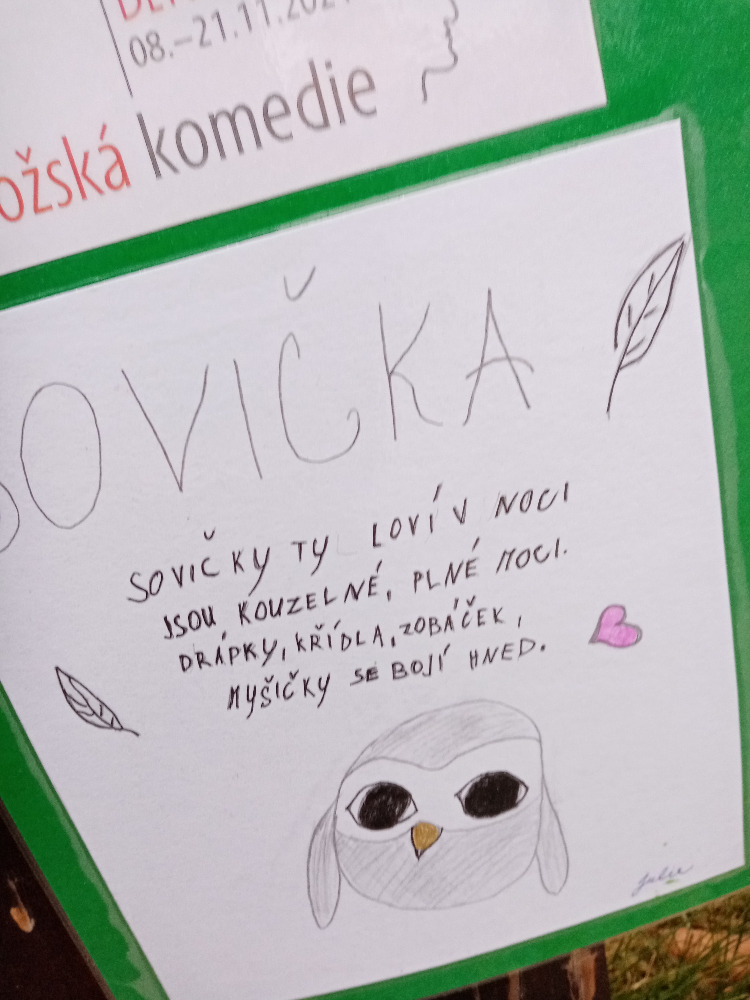 08.–21.11.
ožská komedie
SOVIČKA
SOVIČKY TY LOVÍ V NOCI
JSOU KOUZELNÉ, PLNÉ MOCI.
DRÁPKY, KŘÍDLA, ZOBÁČEK,
MYŠIČKY SE BOJÍ HNED.
Julie